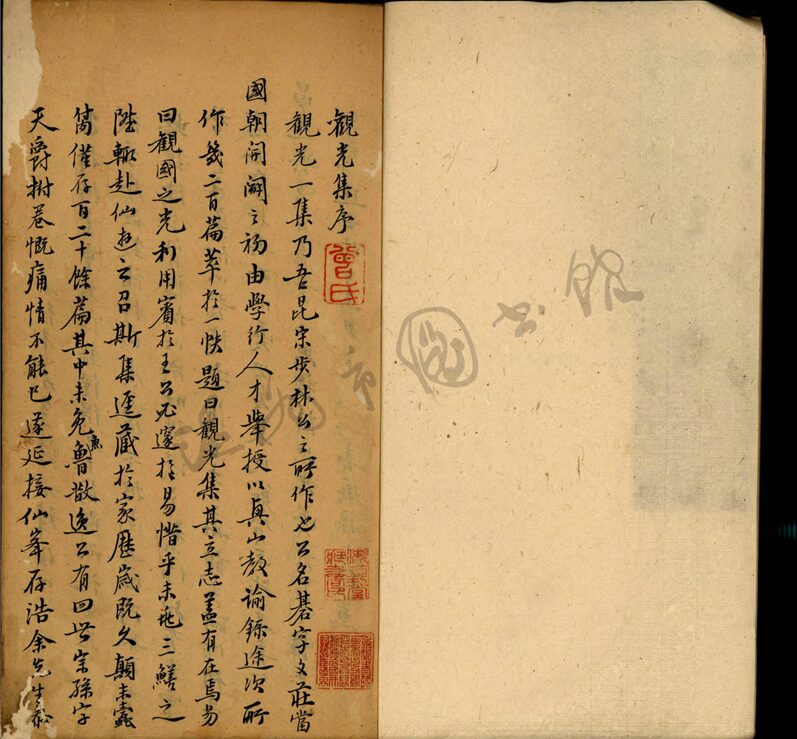 觀光集序
觀光一集乃吾昆宗步林公之所作也公名碁字文莊當
國朝開闢之初由學行人才舉授以真山教諭錄途次所
作幾二百篇萃於一帙題曰觀光集其立志蓋有在焉易
曰觀國之光利用賓於王公必邃於易惜乎未兆三鱔之
陞輒赴仙逰之召斯集遂藏於家歷歲既久顛末蠹
僅存百二十餘篇其中未免魯魚散逸公有四世宗孫字
天爵拊卷慨痛情不能已遂延接仙峯存浩余先生
曾氏
圖書館